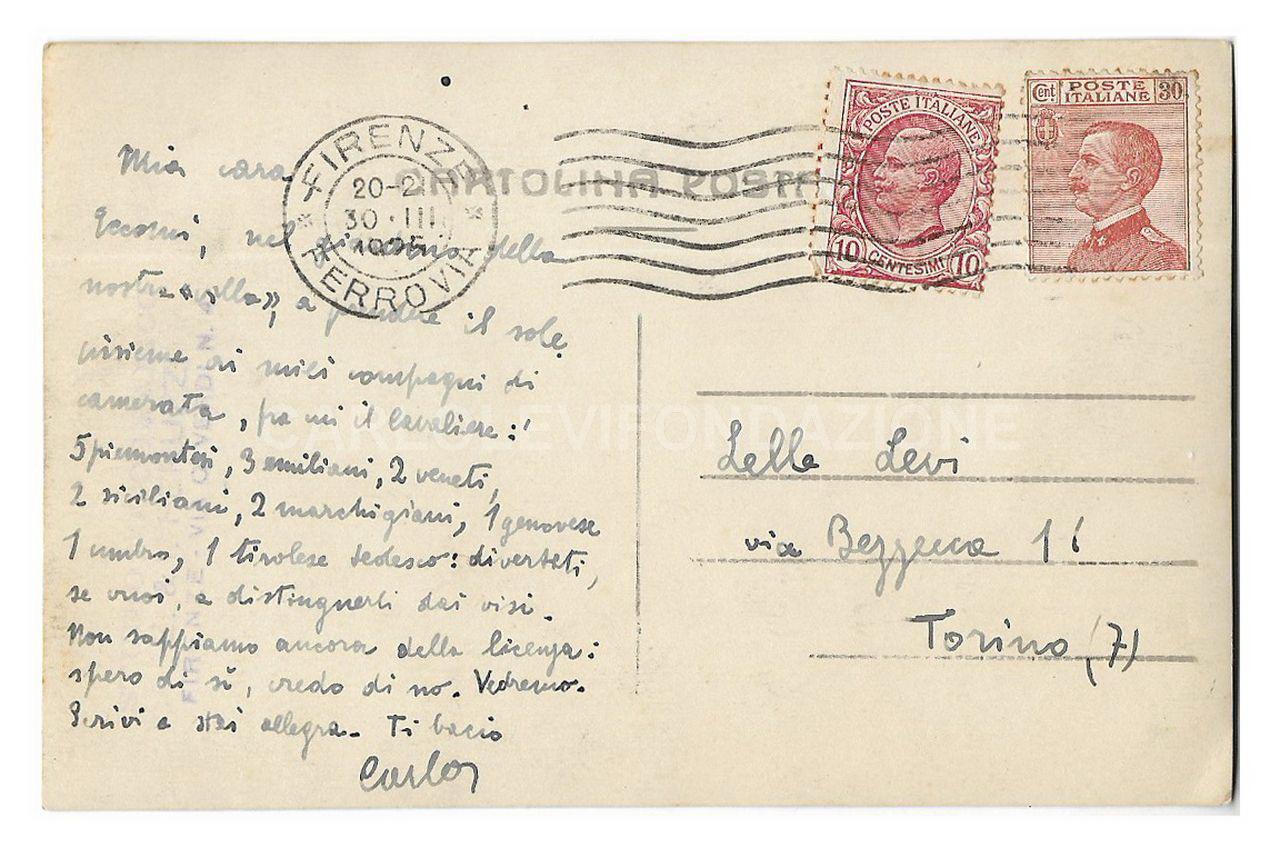 Mia cara
Eccomi, nel giardino della
nostra «villa», a prendere il sole
insieme ai miei compagni di
camerata, fra cui il Cavaliere:
5 piemontesi, 3 emiliani, 2 veneti,
2 siciliani, 2 marchigiani, 1 genovese
1 umbro, 1 tirolese tedesco: divertiti,
se vuoi, a distinguerli dai visi.
Non sappiamo ancora della licenza:
spero di sì, credo di no. Vedremo.
Scrivi e stai allegra. Ti bacio
Carlo
FIRENZE
20-2
30·III
FERROVIA
CARTOLINA POSTA
POSTE ITALIANE
10 CENTESIMI 10
Cent. POSTE ITALIANE 30
CARLO LEVI FONDAZIONE
Lelle Levi
via Bezzecca 11
Torino (7)
FIRENZE - VIA G. VERDI N.